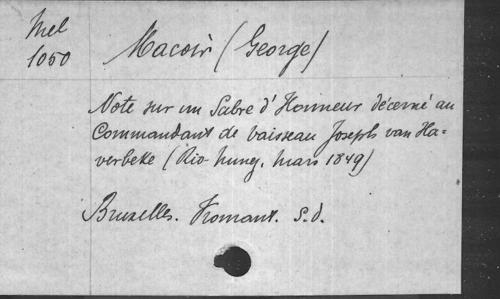 Mel
1050
Macoir (George)
Note sur un Sabre d'Honneur décerné au
Commandant de vaisseau Joseph van Ha-
verbeke (Rio-Nunez, mars 1849)
Bruxelles. Fromant. s.d.